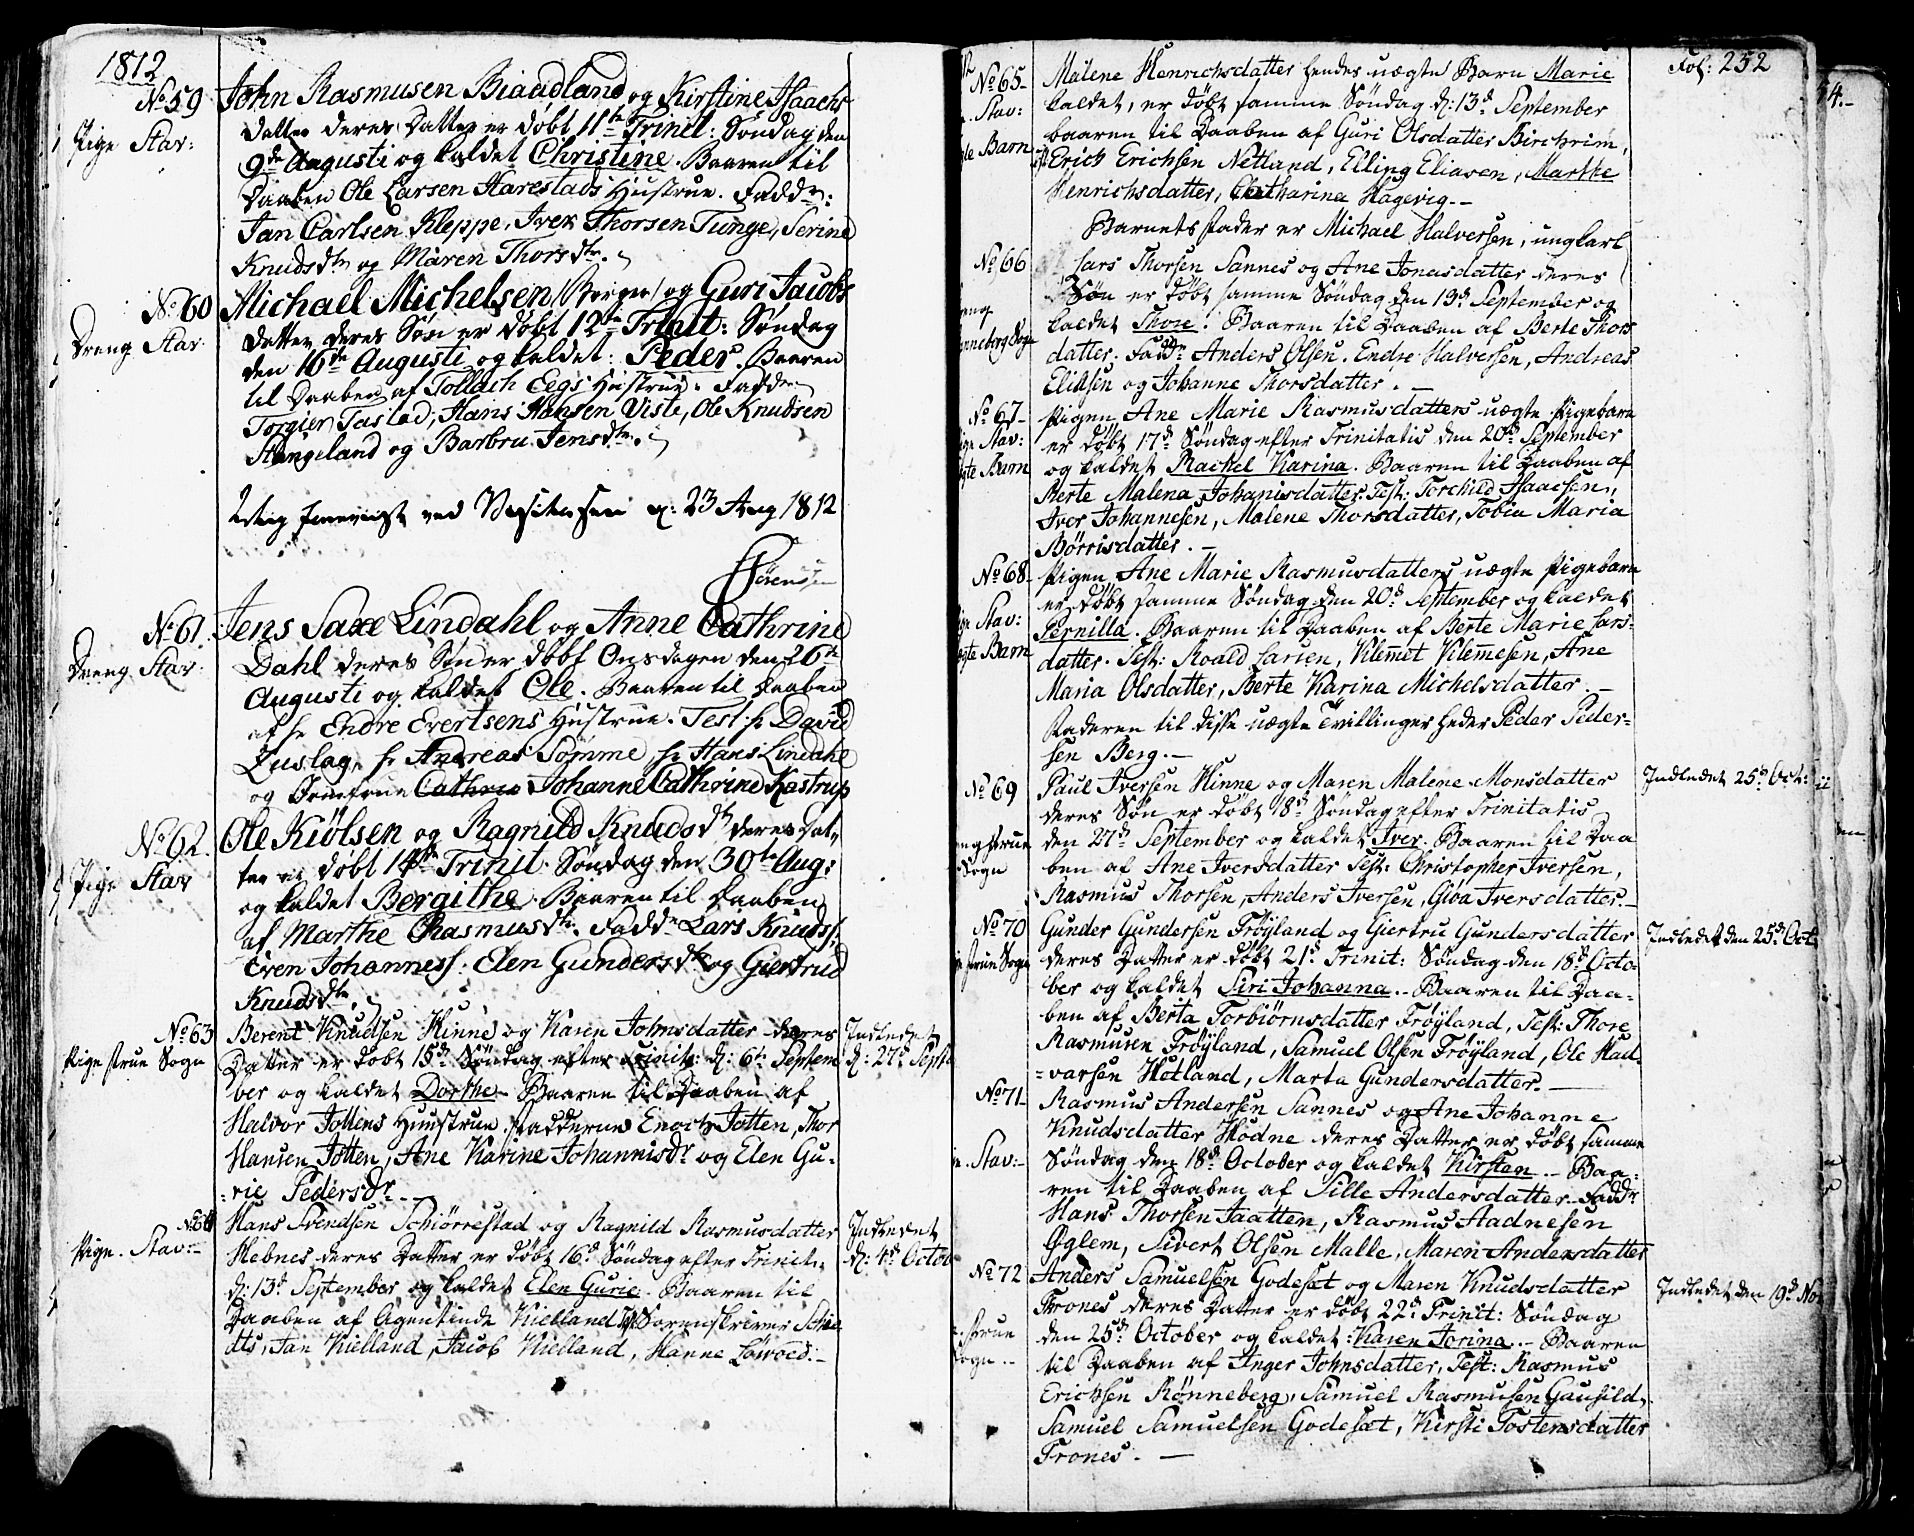 1812
No 59
Pige Stav:
John Rasmusen Biaadland og Kirstine Isaachs
datter deres Datter er døbt 11te Trinit: Søndag den
9de Augusti og kaldet Christine. Baaren til
Daaben Ole Larsen Harestads Hustrue. Faddr:
Jan Carlsen Kleppe, Iver Thorsen Tunge, Serine
Knudsdtr og Maren Thorsdtr.
No 60
Dreng Stav:
Michael Michelsen / Borger / og Guri Jacobs
datter deres Søn er døbt 12te Trinit: Søndag
den 16de Augusti og kaldet: Peder. Baaren
til Daaben af Tollach Eegs Hustrue. Faddr
Torgier Tastad, Hans Hansen Viste, Ole Knudsen
Stangeland og Barbru Jensdtr.
ved Visitasen d: 23 Aug 1812
Sørensen
No 61.
Dreng Stav:
Jens Saxe Lindahl og Anne Cathrine
Dahl deres Søn er døbt Onsdagen den 26te
Augusti og kaldet Ole. Baaren til Daaben
af hr Endre Evertsens Hustrue. Test hr David
Duslage hr Andreas Sømme, hr Hans Lindahl
og Cathrin Johanne Cathrine Kastrup
No 62.
Pige Stav
Ole Kiølsen og Ragnild Knudsdtr deres Dat,
ter er døbt 14de Trinit. Søndag den 30te Aug:
og kaldet Bergithe. Baaren til Daaben
af Marthe Rasmusdtr. Faddr Lars Knuds:
Even Johanness: Elen Gundersdtr og Giertrud
Knudsdtr.
No 63
Pige frue Sogn
Berent Knudsen Hinne og Karen Johnsdatter deres
Datter er døbt 15de Søndag efter Trinit: d: 6te Septem
ber og kaldet Dorthe. Baaren til Daaben af
Halvor Jottens Huustrue. Fadderne Enoch Jotten, Thor
Hansen Jotten, Ane Karine Johannisdr og Elen Gu-
-rie Pedersdr.
Indledet
d: 27de Sept
No 64
Pige. Stav:
Hans Svendsen Schiørrestad og Ragnild Rasmusdatter
Hebnes deres Datter er døbt 16d Søndag efter Trinit:
d: 13d September og kaldet Elen Gurie. Baaren til
Daaben af Agentinde Kielland Test Sorenskriver Schie
dts, Jan Kielland, Jacob Kielland, Hanne Løwold.-
Indledet
d: 4d Octob
Fol: 252
No 65
Stav:
Barn
Malene Henrichsdatter hendes uægte Barn Marie
kaldet, er døbt samme Søndag d: 13d September
baaren til Daaben af Guri Olsdatter Birchrim,
Erich Erichsen Netland, Elling Eliasen, Marthe
Henrichsdatter, Catharina Hagevig.-
Barnets Fader er Michael Halversen, ungkarl
No 66
Lars Thorsen Sannes og Ane Jonasdatter deres
Søn er døbt samme Søndag den 13d September og
kaldet Thore. Baaren til Daaben af Berte Thors
datter. Faddr Anders Olsen. Endre Halversen, Andreas
Eliasen og Johanne Thorsdatter.-
No 67
Stav:
Barn
Pigen Ane Marie Rasmusdatters uægte Pigebarn
er døbt 17d Søndag efter Trinitatis den 20d September
og kaldet Rachel Karina. Baaren til Daaben af
Berte Malena Johanisdatter. Test: Torchild Isacsen,
Iver Johannesen, Malene Thorsdatter, Tobia Maria
Børrisdatter.-
No 68
Stav:
Barn
Pigen Ane Marie Rasmusdatters uægte Pigebarn
er døbt samme Søndag den 20d September og kaldet
Pernilla. Baaren til Daaben af Berte Marie Lars-
datter. Test: Roald Larsen, Vilemet Vilemesen, Ane
Maria Olsdatter, Berte Karina Michelsdatter.-
Faderen til disse uægte Tvillinger heder Peder Peder-
sen Berg.-
No 69
frue
Sogn
Paul Iversen Hinne og Maren Malene Monsdatter
deres Søn er døbt 18d Søndag efter Trinitatis
den 27d September og kaldet Iver. Baaren til Daa
ben af Ane Iversdatter Test: Christopher Iversen,
Rasmus Thorsen, Anders Iversen, Giøa Iversdatter.-
Indledet 25d Oct:
No 70
frue Sogn
Gunder Gundersen Frøyland og Giertru Gundersdatter
deres Datter er døbt 21d Trinit: Søndag den 18d Octo-
ber og kaldet Siri Johanna.- Baaren til Daa-
ben af Berta Torbiørnsdatter Frøyland, Test: Thore
Rasmusen Frøyland, Samuel Olsen Frøyland, Ole Had-
-varsen Hetland, Marta Gundersdatter.-
Indledet den 25d Oct
No 71
Stav:
Rasmus Andersen Sannes og Ane Johanne
Knudsdatter Hodne deres Datter er døbt samme
Søndag den 18d October og kaldet Kirsten.- Baa-
ren til Daaben af Sille Andersdatter. Faddr
Hans Thorsen Jaatten, Rasmus Aadnesen
Oglem, Sivert Olsen Malle, Maren Andersdatter
No 72
frue
Sogn
Anders Samuelsen Godeset og Maren Knudsdatter
Trones deres Datter er døbt 22d Trinit: Søndag
den 25d October og kaldet: Karen Torina.- Baaren
til Daaben af Inger Johnsdatter, Test: Rasmus
Erichsen Rønneberg, Samuel Rasmusen Gausild,
Samuel Samuelsen Godeset, Kirsti Tostensdatter
Trones.-
Indledet den 19d No